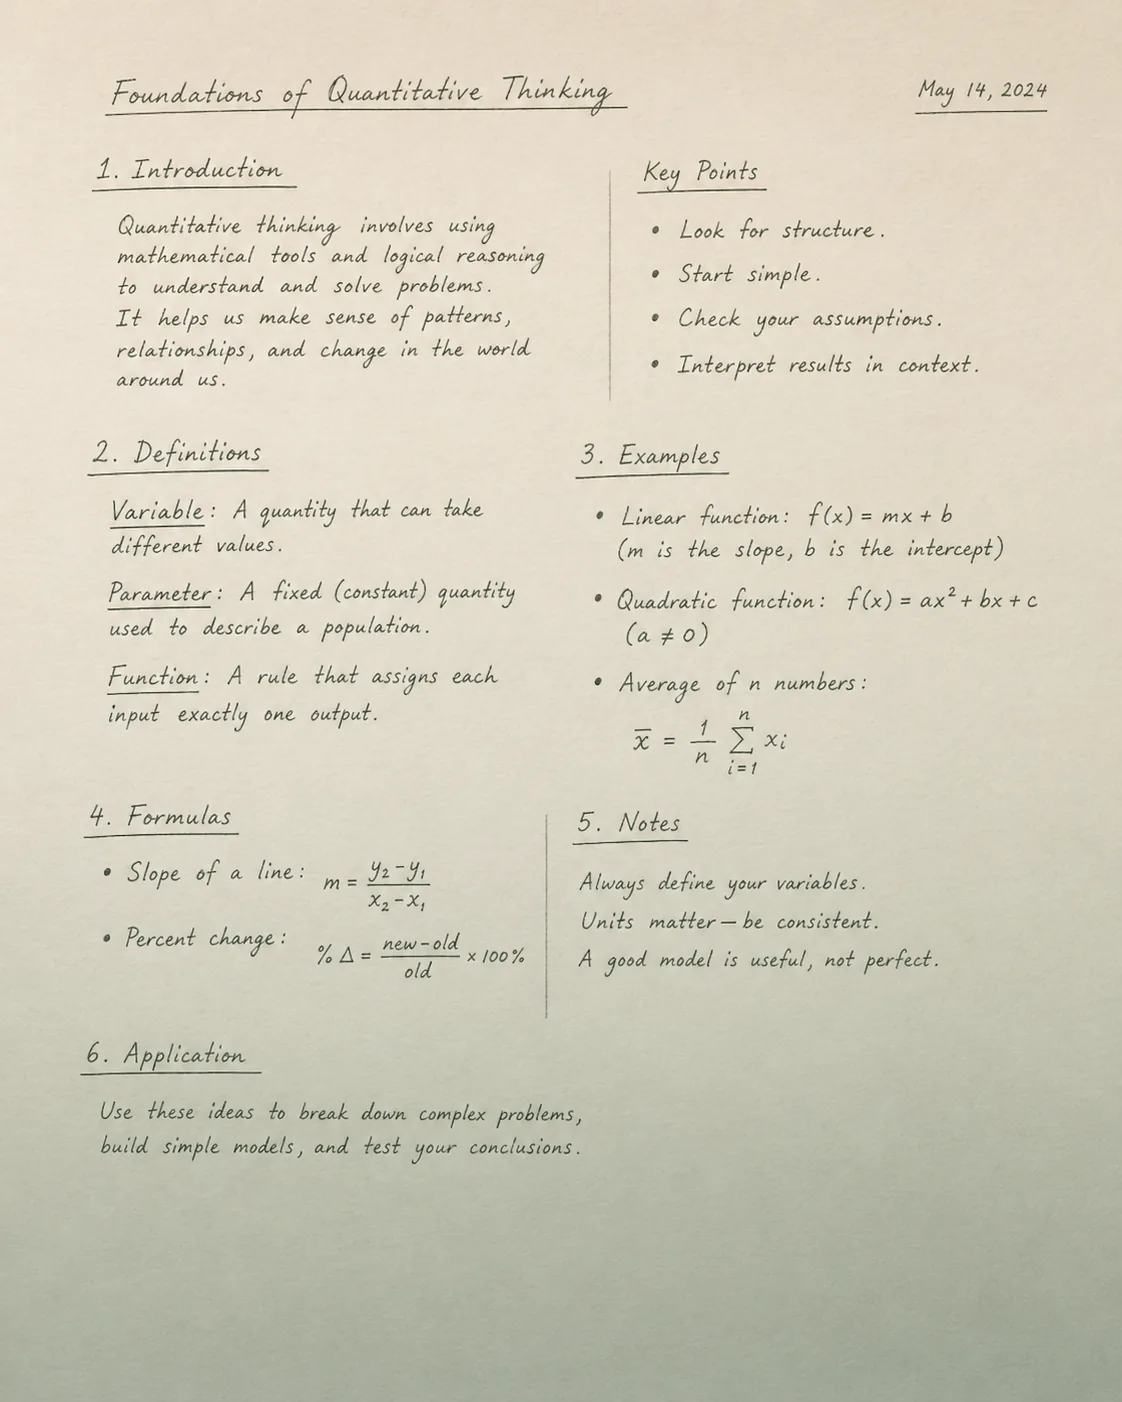 Foundations of Quantitative Thinking
May 14, 2024
1. Introduction
Quantitative thinking involves using
mathematical tools and logical reasoning
to understand and solve problems.
It helps us make sense of patterns,
relationships, and change in the world
around us.
Key Points
• Look for structure.
• Start simple.
• Check your assumptions.
• Interpret results in context.
2. Definitions
Variable: A quantity that can take
different values.
Parameter: A fixed (constant) quantity
used to describe a population.
Function: A rule that assigns each
input exactly one output.
3. Examples
• Linear function: f(x) = mx + b
(m is the slope, b is the intercept)
• Quadratic function: f(x) = ax² + bx + c
(a ≠ 0)
• Average of n numbers:
x̄ = 1/n ∑_{i=1}^{n} xᵢ
4. Formulas
• Slope of a line: m = (y₂ - y₁)/(x₂ - x₁)
• Percent change: % Δ = (new - old)/old × 100%
5. Notes
Always define your variables.
Units matter — be consistent.
A good model is useful, not perfect.
6. Application
Use these ideas to break down complex problems,
build simple models, and test your conclusions.